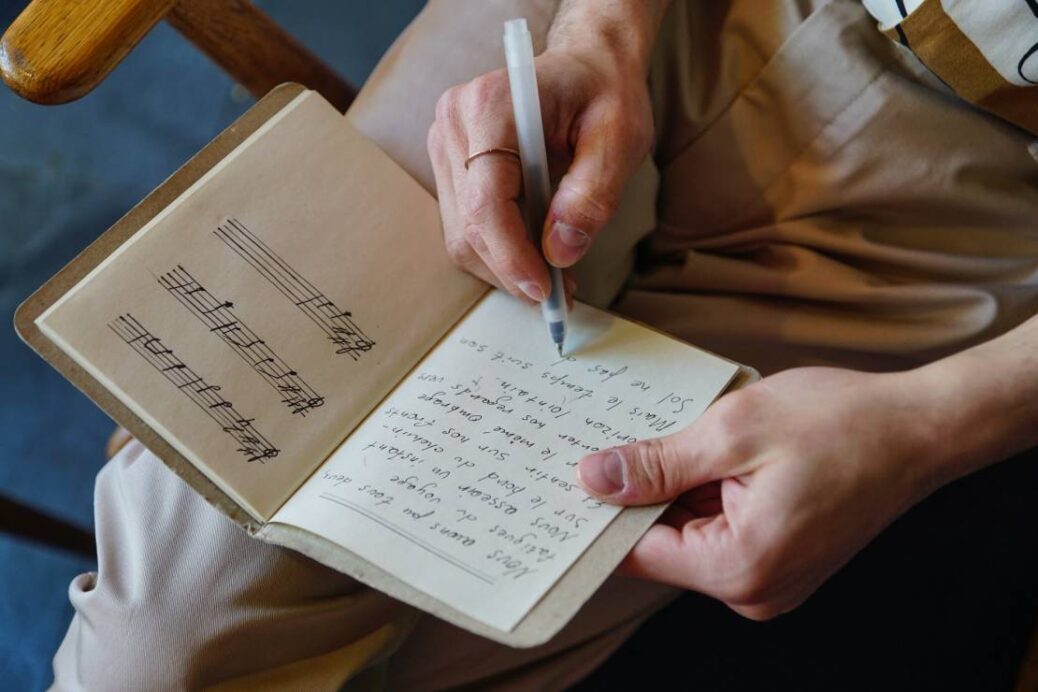 Nous aions pu tous deux
fatigues du voyage
Nous asseoir un instant
sur le bord du chemin-
sentir sur nos fronts
le même ombrage
nos regards vers
lointain.
Mais le temps suit son
Sol ne pas